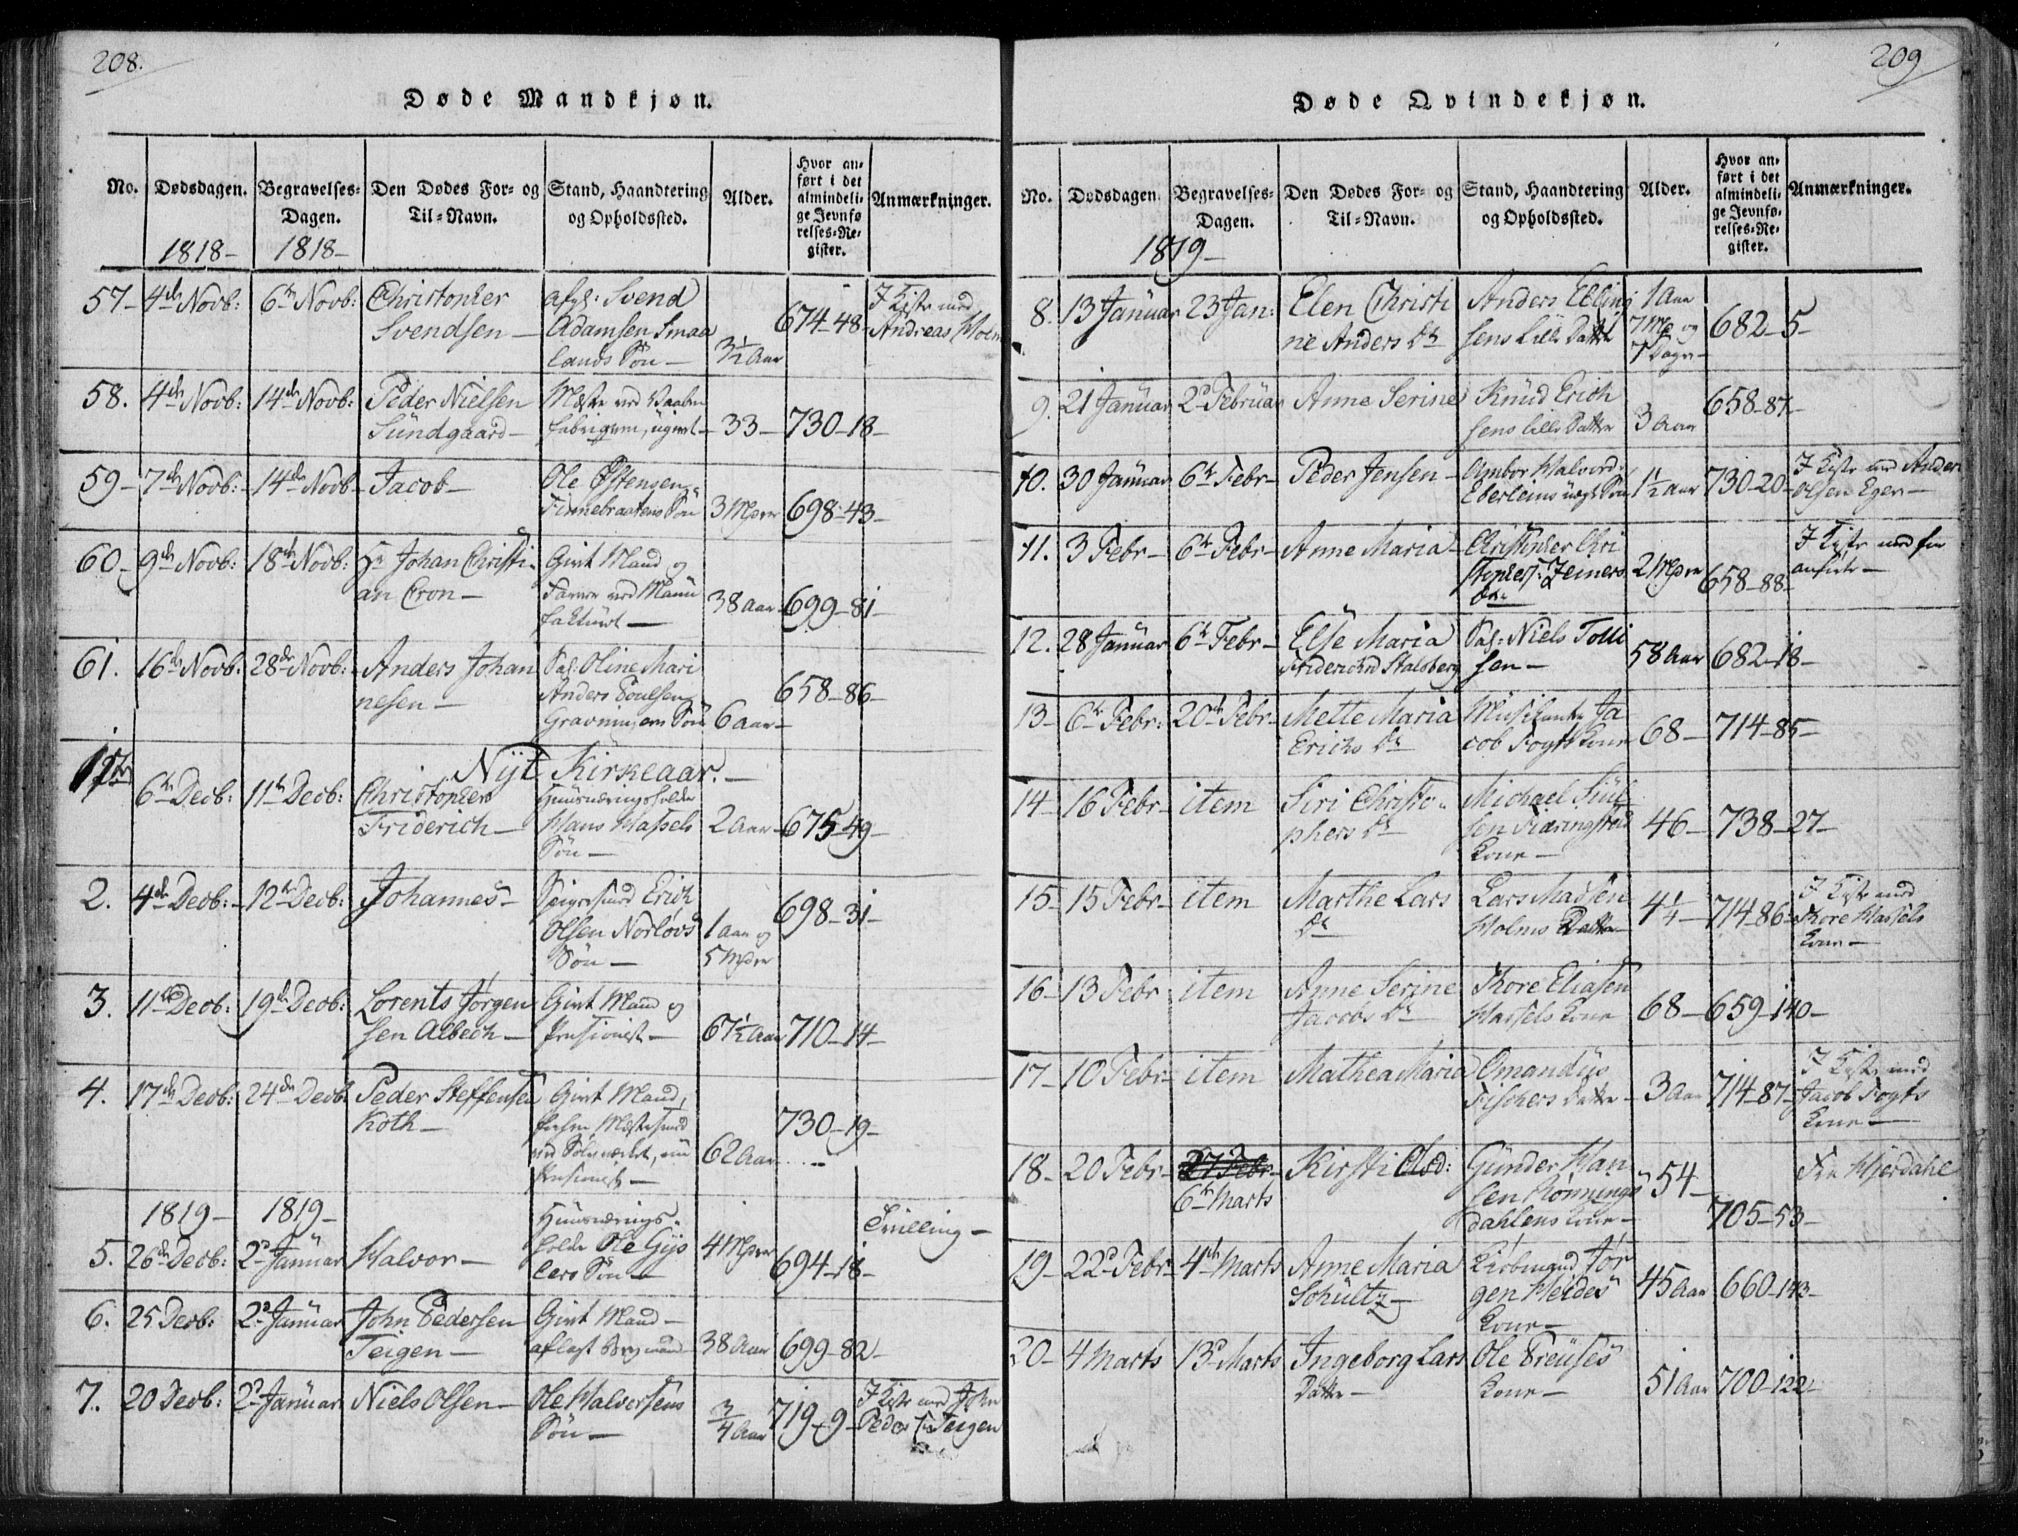 208.
Døde Mandkjøn.
No.
Dødsdagen.
Begravelses-
Dagen.
Den Dødes For- og
Til-Navn.
Stand, Haandtering
og Opholdssted.
Alder.
Hvor an-
ført i det
almindeli-
ge Jevnfø
relses-Re-
gister.
Anmærkninger.
1818-
1818-
57- 4de Novb: 6te Novb: Christopher
Svendsen-
afg: Svend
Adamsen Smaa
lands Søn-
3½ Aar
674-48-
I Kiste med
Andreas
58. 4de Novb: 14de Novb: Peder Nielsen
Sundgaard-
Mester ved Vaaben
fabriqven, ugivt-
33-
730-18-
59- 7de Novb:- 14de Novb- Jacob-
Ole Østensen
Finnebraatens Søn
3 Mdr
698-43-
60- 9de Novb: 18de Novb: Hr Johan Christi-
an Cron-
Givt Mand og
ved Manu
facturet-
38 Aar-
699-81-
61. 16de Novb: 28de Novb:- Anders Johan
nesen-
Sal: Oline Mari
Anders Poulsen
Søn
6 Aar-
658-86-
Nyt Kirkeaar.-
6te Decb: 11te Decb: Christopher
Friderich-
Huusværingsholder
Hans Hassels
Søn-
2 Aar-
675-49-
2. 4de Decb:- 12te Decb: Johannes-
Erich
Olsen Norløvs
Søn-
1 Aar og
5 Mdr
698-31-
3. 11te Decb: 19de Decb: Lorents Jørgen
sen Albech-
Givt Mand og
Pensionist-
67½ Aar
710-14-
4. 17de Decb: 24de Decb: Peder Steffensen
Koth-
Givt Mand,
ved Sølvværket, nu
Pensionist-
62 Aar
730-19-
1819- 1819-
5. 26de Decb: 2d Januar Halvor-
Huusværings-
holder Ole Gys
lers Søn-
4 Mdr
694-18-
Trilling-
6. 25 Decb: 2d Januar John Pedersen
Teigen-
Givt Mand-
aflagt Bergmand
38 Aar
699-82-
7. 20 Decb: 2d Januar Niels Olsen-
Ole Halvorsens
Søn-
¾ Aar
719-9-
I Kiste med John
Peders: Teigen
209
Døde Qvindekjøn.
No.
Dødsdagen
Begravelses-
Dagen.
Den Dødes For- og
Til-Navn.
Stand, Haandtering
og Opholdssted.
Alder.
Hvor an-
ført i det
almindeli-
ge Jevnfø-
relses-Re-
gister.
Anmærkninger.
1819-
8. 13 Januar 23 Jan: Elen Christi
ne Anders Dr
Anders Elling
sens lille Datter
1 Aar
7 Mdr og
7 Dage-
682-5-
9. 21 Januar 2d Februar Anne Serine
Knud Erich
sens lille Datter
3 Aar
658-87-
10. 30 Januar 6te Febr- Peder Jensen-
Ambor Halvord:
Eberleins uægt Søn
1½ Aar
730-20-
I Kiste med Anders
Olsen Eger-
11. 3 Febr- 6te Febr- Anne Maria-
Christopher Chri
stophers: Zeiners
Dr
2 Mdr
658-88-
I Kiste med
anførte-
12. 28 Januar 6te Febr- Else Maria
Friderichsd Stalsberg
Sal: Niels Tolli
sen-
58 Aar
682-18-
13- 6te Febr: 20de Febr- Mette Maria
Erichs Dr
Musikanter Ja
cob Fogts Kone
68-
714-85-
14- 16 Febr- item Siri Christo-
phers Dr
Michael Siul
sen Fiæringstad
Kone-
46-
738-27-
15- 15 Febr- item Marthe Lars
Dr
Lars Madsen
Holms Datter
4¼-
714-86-
I Kiste med
Thore Hassels
Kone-
16- 13 Febr- item Anne Serine
Jacobs Dr
Thore Eliasen
Hassels Kone
68-
659-140-
17- 10 Febr- item Mathea Maria
Omandus
Fischers Datter-
3 Aar
714-87-
I Kiste med
Jacob Fogts
Kone-
18- 20 Febr- 27 Febr-
6te Marts
Kirsti Olsd:
Gunder Han
sen Rønnings
dahlens Kone-
54-
705-53-
Fra Hierdahl
19- 22d Febr- 4de Marts Anne Maria
Schultz-
Kiøbmand Jør
gen Heides
Kone-
45 Aar
660-143-
20- 4 Marts 13d Marts Ingeborg Lars
Datter-
Ole Preuses
Kone-
51 Aar
700-122-